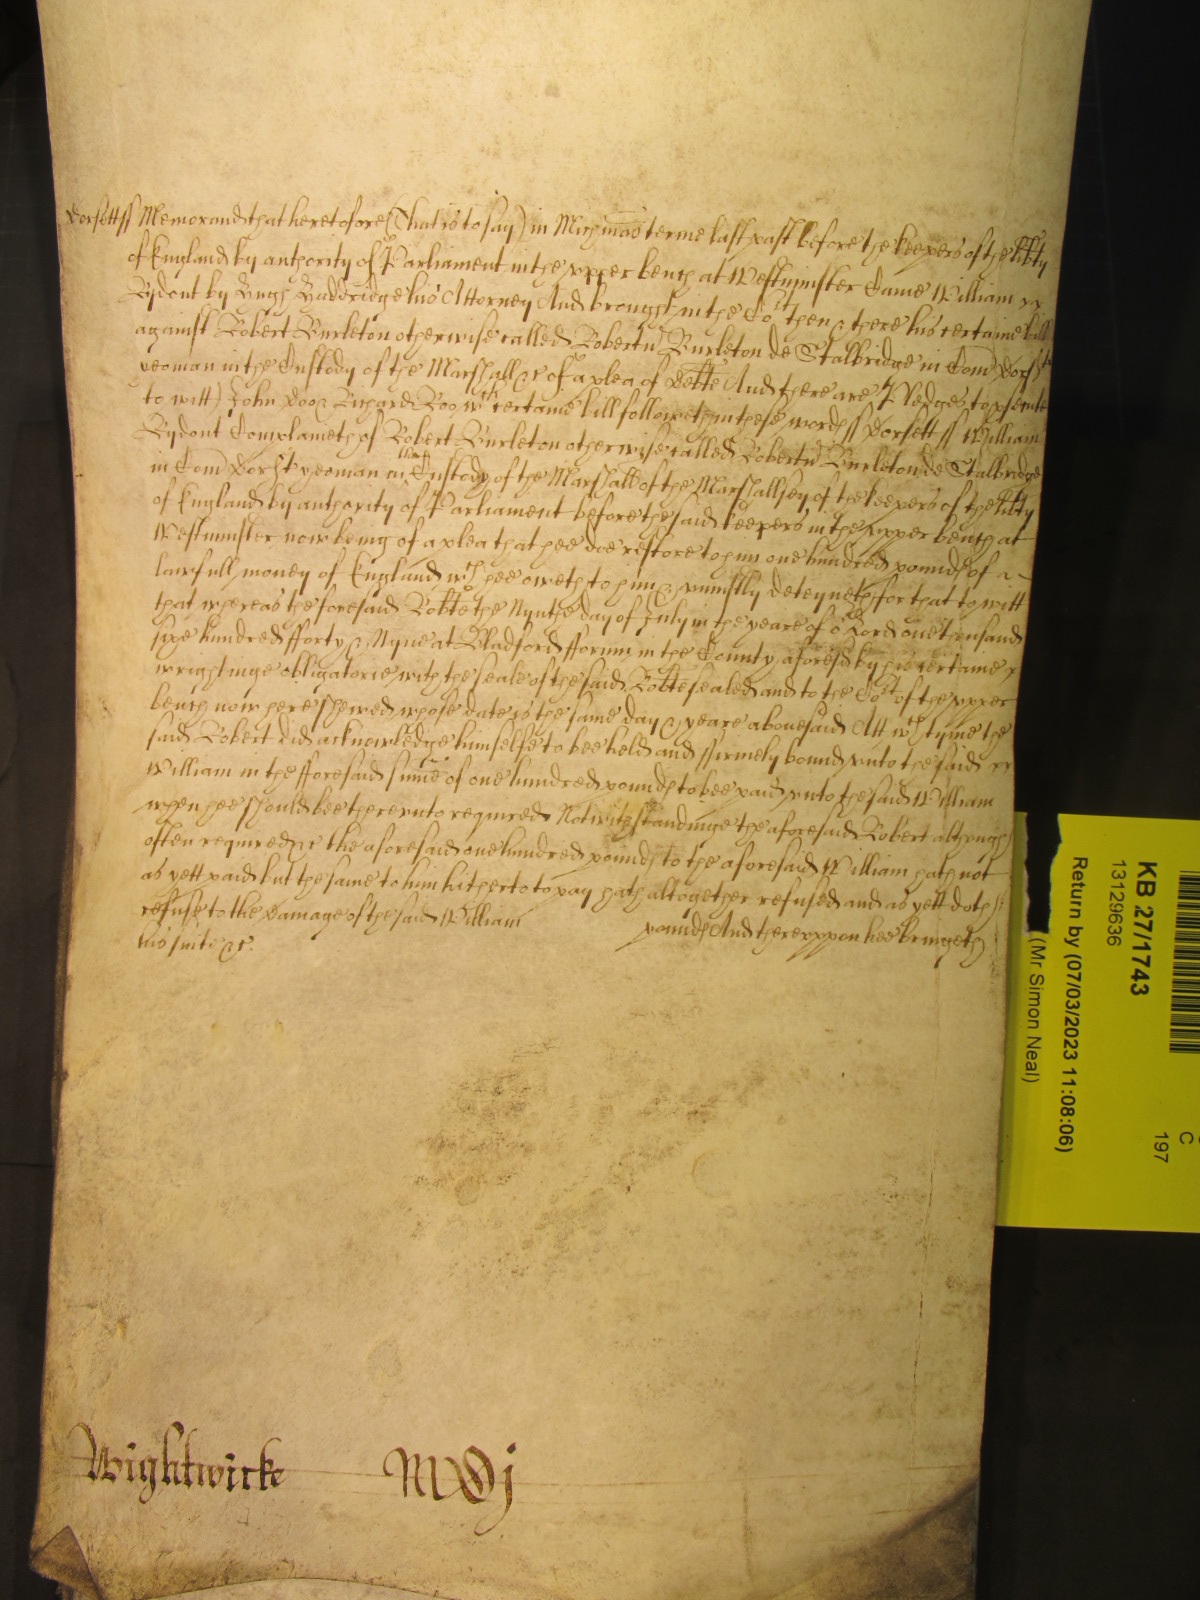 Dorsett ss Memorand that heretofore (That is to say) in Mich'mas terme last past before the keepers of the lib'ty
of England by authority of Parliament in the upper bench at Westminster Came William
Bydout by Hugh Baddridge his Attorney And brought in the Co't then & there his certaine bill
against Robert Burleton otherwise called Robertu' Burleton de Stalbridge in Com Dors't
yeoman in the Custody of the Marshall &c of a plea of debte And there are Pledges to p'sente
to witt) John Doo & Richard Roo w'ch certaine bill followeth in these words ss Dorsett ss William
Bydout Complaineth of Robert Burleton otherwise called Robertu' Burleton de Stalbridge
in Com Dors't yeoman in the Custody of the Marshall of the Marshallsey of the keepers of the lib'ty
of England by authority of Parliament before the said keepers in the upper bench at
Westminster now being of a plea that hee doe restore to him one hundred pounds of
lawfull money of England w'ch hee oweth to him & uniustly deteyneth for that to witt
that whereas the foresaid Rob'te the Nynth day of July in the yeare of o'r Lord one thousand
sixe hundred fforty & Nyne at Bladford fforum in the County aforesd by his certaine
wrightinge obligatorie with the seale of the said Rob'te sealed and to the Co't of the upper
bench now here shewed whose date is the same day & yeare abovesaid Att w'ch tyme the
said Robert did acknowledge himselfe to bee held and ffirmely bound unto the said
William in the fforesaid sume of one hundred pounds to bee paid unto the said William
when hee should bee thereunto required Notwithstandinge the aforesaid Robert although
often required &c the aforesaid one hundred pounds to the aforesaid William hath not
as yett paid but the same to him hitherto to pay hath altogether refused and as yett doth
refuse to the damage of the said William pounds And thereuppon hee bringeth
his suite &c.
Wightwicke
KB 27/1743
13129636
Return by (07/03/2023 11:08:06)
(Mr Simon Neal)
C
197